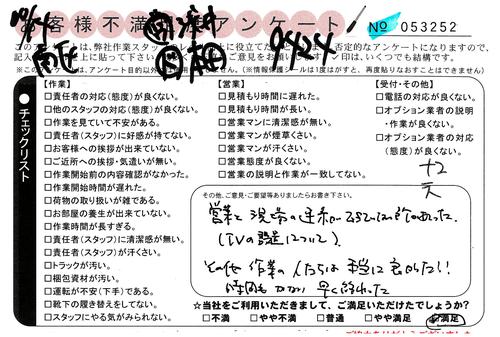 お客様不満足アンケート
No 053252
このアンケートは、弊社作業スタッフ
否定的なアンケートになりますので、
印は、いくつでも結構です。
※このアンケートは、アンケート目的以外
(※情報保護シールは1度はがすと、再度貼りなおすことはできません)
●チェックリスト
【作業】
□責任者の対応(態度)が良くない。
□他のスタッフの対応(態度)が良くない。
□作業を見ていて不安がある。
□責任者(スタッフ)に好感が持てない。
□お客様への挨拶が出来ていない。
□ご近所への挨拶・気遣いが無い。
□作業開始前の内容確認がなかった。
□作業開始時間が遅れた。
□荷物の取り扱いが雑である。
□お部屋の養生が出来ていない。
□作業時間が長すぎる。
□責任者(スタッフ)に清潔感が無い。
□責任者(スタッフ)が汗くさい。
□トラックが汚い。
□梱包資材が汚い。
□運転が安(下手)である。
□靴下の履き替えをしてない。
□スタッフにやる気がみられない。
【営業】
□見積もり時間に遅れた。
□見積もり時間が長い。
□営業マンに清潔感が無い。
□営業マンが煙草くさい。
□営業マンが汗くさい。
□営業態度が良くない。
□営業の説明と作業が一致してない。
【受付・その他】
□電話の対応が良くない。
□オプション業者の説明
・作業が良くない。
□オプション業者の対応
(態度)が良くない。
その他、ご意見・ご要望等ありましたらお書き下さい。
営業と現場の連和
(TVの設定について)
その他作業の人たちは本当に良かった!!
時間もかからず早く終わった
☆当社をご利用いただきまして、ご満足いただけたでしょうか?
□不満 □やや不満 □普通 □やや満足 満足